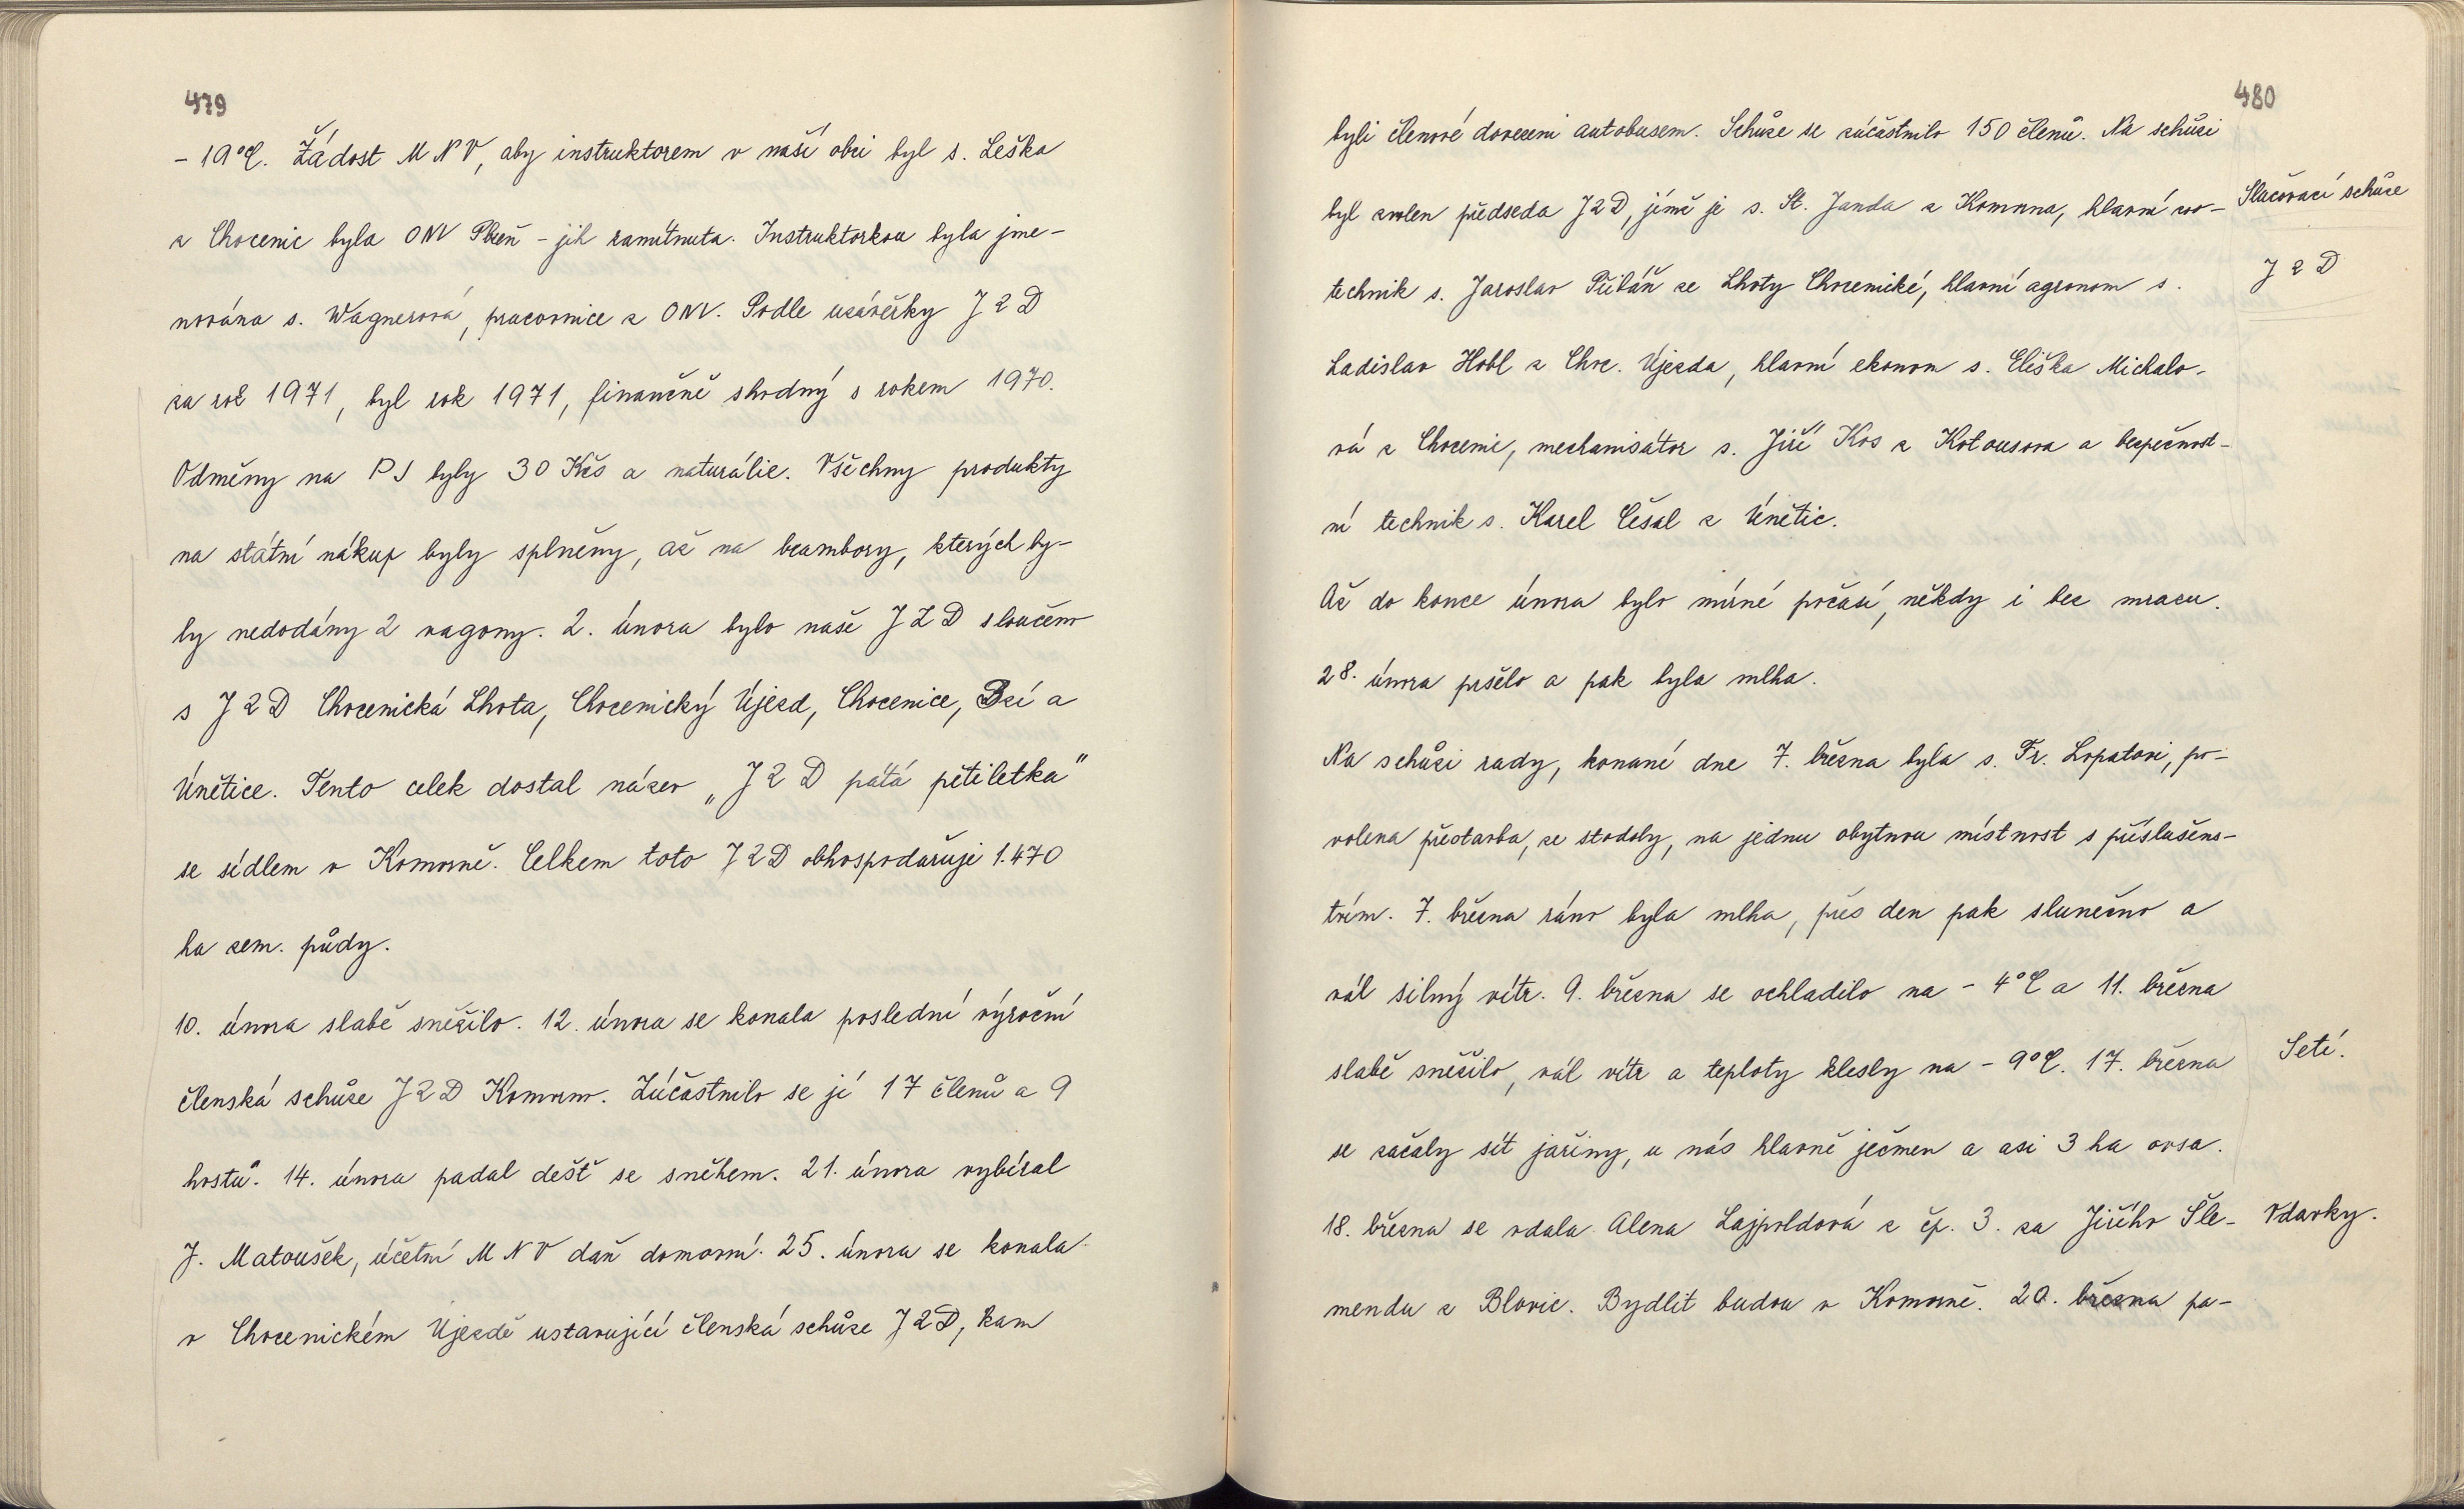 479
- 19°C. Žádost MNV, aby instruktorem v naší obci byl s. Leška
z Chocenic byla ONV Plzeň - jih zamítnuta. Instruktorkou byla jme-
nována s. Wagnerová, pracovnice z ONV. Podle uzávěrky JZD
za rok 1971, byl rok 1971, finančně shodný s rokem 1970.
Odměny na PJ byly 30 Kčs a naturálie. Všechny produkty
na státní nákup byly splněny, až na brambory, kterých by-
ly nedodány 2 vagony. 2. února bylo naše JZD sloučeno
s JZD Chocenická Lhota, Chocenický Újezd, Chocenice, Bzí a
Únětice. Tento celek dostal název „JZD pátá pětiletka"
se sídlem v Komorně. Celkem toto JZD obhospodařuje 1.470
ha zem. půdy.
10. února slabě sněžilo. 12. února se konala poslední výroční
členská schůze JZD Komorno. Zúčastnilo se jí 17 členů a 9
hostů. 14. února padal déšť se sněhem. 21. února vybíral
J. Matoušek, účetní MNV daň domovní. 25. února se konala
v Chocenickém Újezdě ustavující členská schůze JZD, kam
480
byli členové dovezeni autobusem. Schůze se zúčastnilo 150 členů. Na schůzi
byl zvolen předseda JZD, jímž je s. St. Janda z Komorna, hlavní zoo-
technik s. Jaroslav Pillář ze Lhoty Chocenické, hlavní agronom s.
Ladislav Hobl z Choc. Újezda, hlavní ekonom s. Eliška Michalo-
vá z Chocenic, mechanisátor s. Jiří Kos z Kotousova a bezpečnost-
ní technik s. Karel Čésal z Únětic.
Až do konce února bylo mírné počasí, někdy i bez mrazu.
28. února pršelo a pak byla mlha.
Na schůzi rady, konané dne 7. března byla s. Fr. Lopatovi, po-
volena přestavba, ze stodoly, na jednu obytnou místnost s příslušens-
tvím. 7. března ráno byla mlha, přes den pak slunečno a
vál silný vítr. 9. března se ochladilo na - 4°C a 11. března
slabě sněžilo, vál vítr a teploty klesly na - 9°C. 17. března
se začaly sít jařiny, u nás hlavně ječmen a asi 3 ha ovsa.
18. března se vdala Alena Lajpoldová z čp. 3. za Jiřího Šle-
mendu z Blovic. Bydlit budou v Komorně. 20. března pa-
Slučovací schůze
JZD
Setí.
Vdavky.